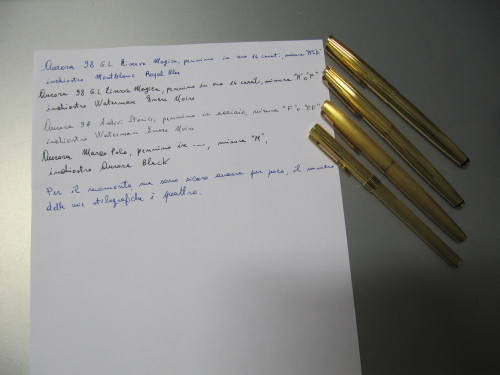 Aurora 98 G.L. Riserva Magica, pennino in oro 14 carati, misura
inchiostro Montblanc Royal Blue
Aurora 98 G.L. Riserva Magica, pennino in oro 14 carati, misura "M" o "F"
inchiostro Waterman Nero
Aurora 98 Serie Storica, pennino in acciaio, misura "F" o "EF"
inchiostro Waterman Nero
Aurora Marco Polo, pennino in ...., misura "M",
inchiostro Aurora Black
Per il momento, ma sono sicuro ancora per poco, il numero
delle mie stilografiche è quattro.